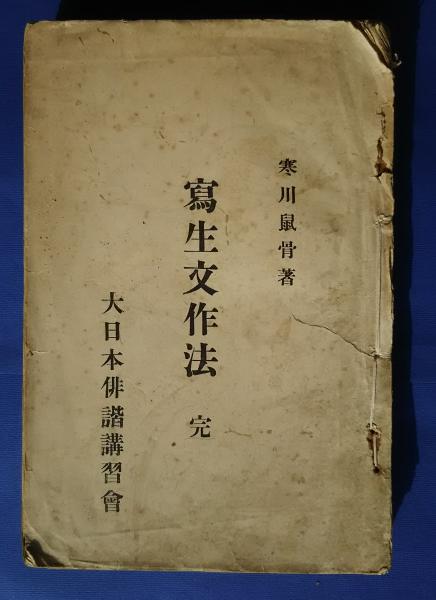 寒川鼠骨著
寫生文作法 完
大日本俳諧講習會